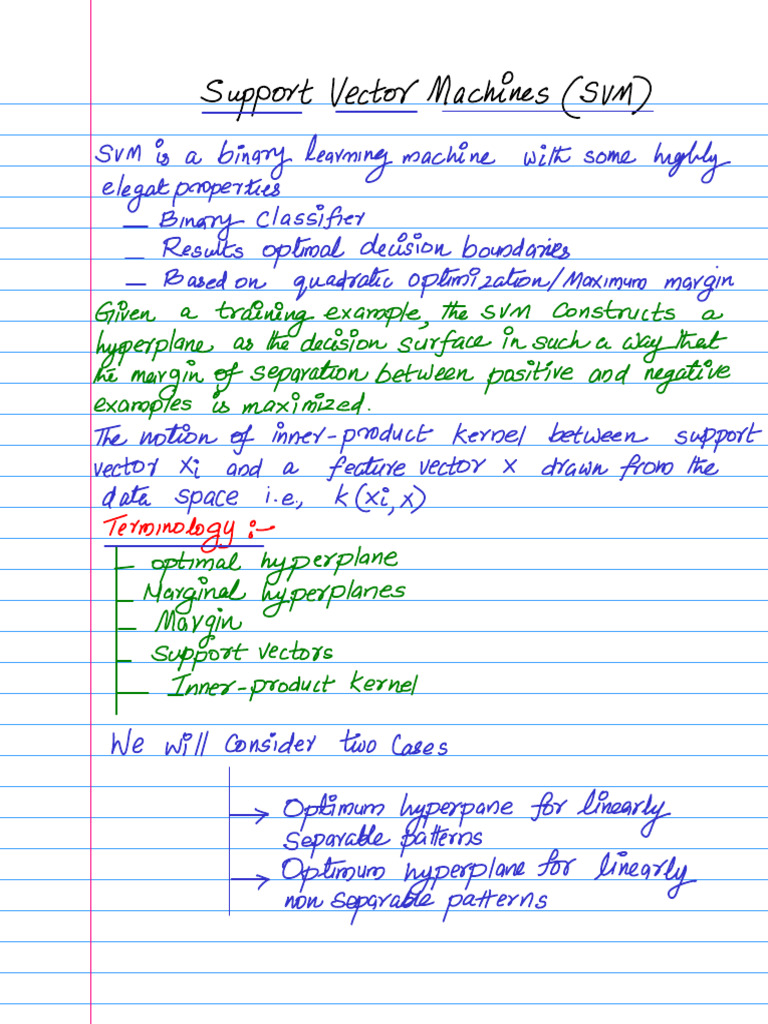 Support Vector Machines (SVM)
SVM is a binary learning machine with some highly
elegat properties
— Binary Classifier
— Results optimal decision boundaries
— Based on quadratic optimization/Maximum margin
Given a training example, the SVM constructs a
hyperplane as the decision surface in such a way that
the margin of separation between positive and negative
examples is maximized.
The notion of inner-product kernel between support
vector xi and a feature vector x drawn from the
data space i.e., k(xi,x)
Terminology :-
— optimal hyperplane
— Marginal hyperplanes
— Margin
— Support vectors
— Inner-product kernel
We will consider two cases
→ Optimum hyperpane for linearly
separable patterns
→ Optimum hyperplane for linearly
non separable patterns